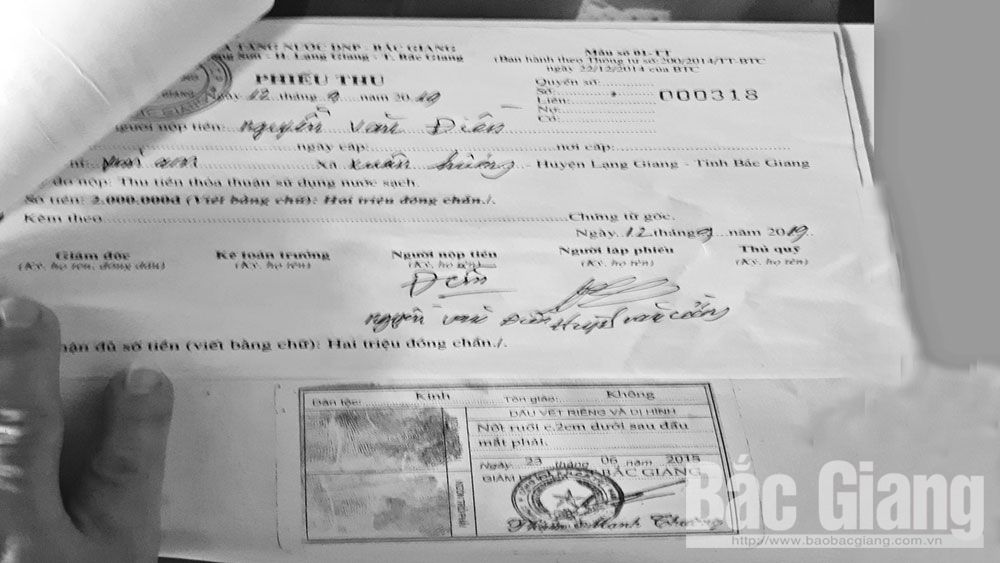 TẦNG NƯỚC DNP - BẮC GIANG
Sơn - H. Lạng Giang - T. Bắc Giang
Mẫu số 01-TT
(Ban hành theo Thông tư số 200/2014/TT-BTC
ngày 22/12/2014 của BTC
PHIẾU THU
Ngày 12 tháng 9 năm 2019
Quyển số:
Số:
Liên:
Nợ:
Có:
000318
người nộp tiền: Nguyễn Văn Điến
ngày cấp: nơi cấp:
Xã Xuân Hương - Huyện Lạng Giang - Tỉnh Bắc Giang
do nộp: Thu tiền thỏa thuận sử dụng nước sạch.
Số tiền: 2.000.000đ (Viết bằng chữ): Hai triệu đồng chẵn./.
Kèm theo Chứng từ gốc.
Ngày 12 tháng 9 năm 2019
Giám đốc Kế toán trưởng Người nộp tiền Người lập phiếu Thủ quỹ
(Ký, họ tên, đóng dấu) (Ký, họ tên) (Ký, họ tên) (Ký, họ tên) (Ký, họ tên)
Nguyễn Văn Văn
đủ số tiền (viết bằng chữ): Hai triệu đồng chẵn./.
Dân tộc: Kinh Tôn giáo: Không
DẤU VẾT RIÊNG VÀ DỊ HÌNH
Nốt ruồi c.2cm dưới sau đầu
mắt phải.
Ngày 23 tháng 06 năm 2015
GIÁM BẮC GIANG
NGÓN TRỎ PHẢI
Bắc Giang
http://www.baobacgiang.com.vn